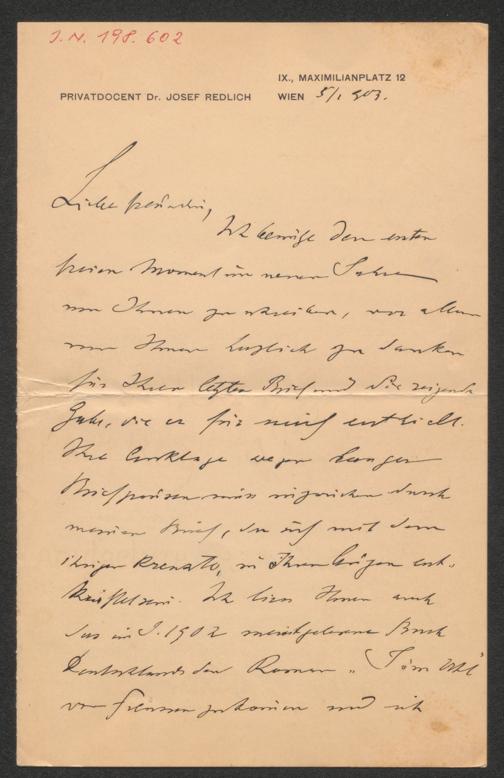 J. N. 198.602
IX., MAXIMILIANPLATZ 12
PRIVATDOCENT Dr. JOSEF REDLICH WIEN 5/I 903.
Liebe Freundin,
Ich benütze den ersten
freien Moment im neuen Jahre
um Ihnen zu schreiben, vor allem
um Ihnen herzlich zu danken
für Ihren letzten Brief und die reizende
Gabe, die er für mich enthielt.
Ihre Anklage wegen langer
Briefpausen muss inzwischen durch
meinen Brief, der sich mit dem
ihrigen kreuzte, in Ihren Augen ent-
kräftet sein. Ich liess Ihnen auch
das im J. 1902 meistgelesene Buch
Deutschlands den Roman "Jörn Uhl"
von Frenssen zukommen und ich